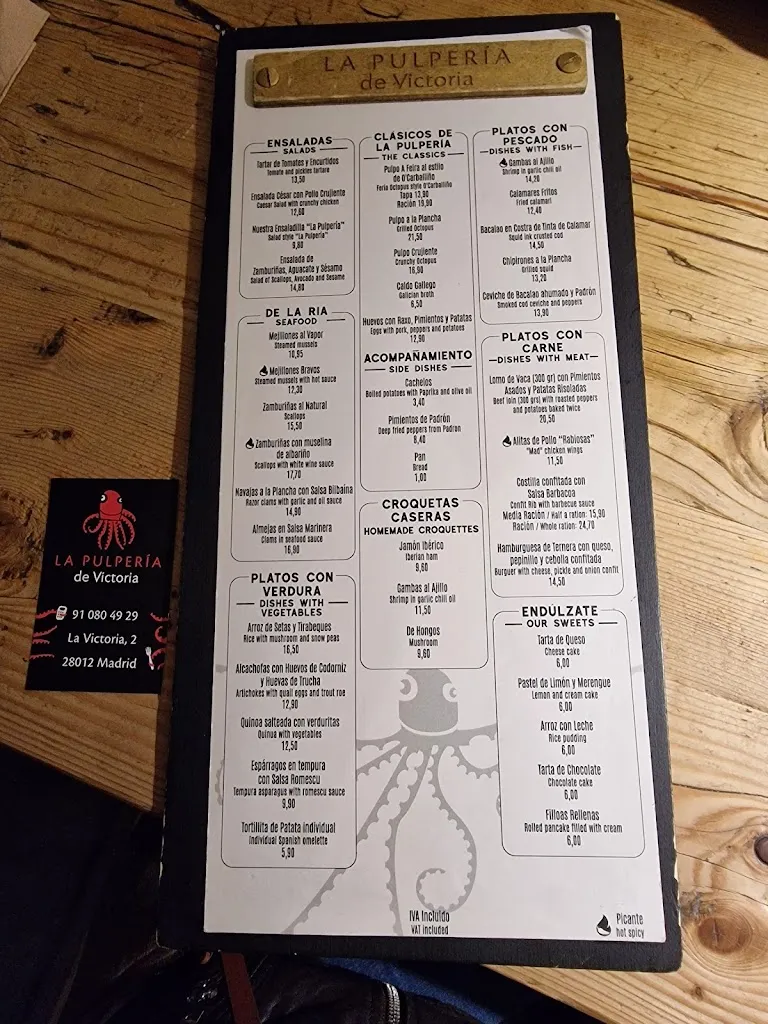 LA PULPERÍA
de Victoria
ENSALADAS
SALADS
Tartar de Tomates y Encurtidos
Tomato and pickles tartare
13,50
Ensalada César con Pollo Crujiente
Caesar Salad with crunchy chicken
12,60
Nuestra Ensaladilla "La Pulpería"
Salad style "La Pulpería"
9,80
Ensalada de
Zamburiñas, Aguacate y Sésamo
Salad of Scallops, Avocado and Sesame
14,80
DE LA RIA
SEAFOOD
Mejillones al Vapor
Steamed mussels
10,95
Mejillones Bravos
Steamed mussels with hot sauce
12,30
Zamburiñas al Natural
Scallops
15,50
Zamburiñas con muselina
de albariño
Scallops with white wine sauce
17,70
Navajas a la Plancha con Salsa Bilbaina
Razor clams with garlic and oil sauce
14,90
Almejas en Salsa Marinera
Clams in seafood sauce
16,90
PLATOS CON
VERDURA
DISHES WITH
VEGETABLES
Arroz de Setas y Tirabeques
Rice with mushroom and snow peas
16,50
Alcachofas con Huevos de Codorniz
y Huevas de Trucha
Artichokes with quail eggs and trout roe
12,90
Quinoa salteada con verduritas
Quinua with vegetables
12,50
Espárragos en tempura
con Salsa Romescu
Tempura asparagus with romescu sauce
9,90
Tortillita de Patata individual
Individual Spanish omelette
5,90
CLÁSICOS DE
LA PULPERÍA
THE CLASSICS
Pulpo A Feira al estilo
de O'Carballiño
Feria Octopus style O'Carballiño
Tapa 13,90
Ración 19,90
Pulpo a la Plancha
Grilled Octopus
21,50
Pulpo Crujiente
Crunchy Octopus
16,90
Caldo Gallego
Galician broth
6,50
Huevos con Raxo, Pimientos y Patatas
Eggs with pork, peppers and potatoes
12,90
ACOMPAÑAMIENTO
SIDE DISHES
Cachelos
Boiled potatoes with Paprika and olive oil
3,40
Pimientos de Padrón
Deep fried peppers from Padron
8,40
Pan
Bread
1,00
CROQUETAS
CASERAS
HOMEMADE CROQUETTES
Jamón Ibérico
Iberian ham
9,60
Gambas al Ajillo
Shrimp in garlic chili oil
11,50
De Hongos
Mushroom
9,60
PLATOS CON
PESCADO
DISHES WITH FISH
Gambas al Ajillo
Shrimp in garlic chili oil
14,20
Calamares Fritos
Fried calamari
12,40
Bacalao en Costra de Tinta de Calamar
Squid ink crusted cod
14,50
Chipirones a la Plancha
Grilled squid
13,20
Ceviche de Bacalao ahumado y Padrón
Smoked cod ceviche and peppers
13,90
PLATOS CON
CARNE
DISHES WITH MEAT
Lomo de Vaca (300 gr) con Pimientos
Asados y Patatas Risoladas
Beef loin (300 grs) with roasted peppers
and potatoes baked twice
20,50
Alitas de Pollo "Rabiosas"
"Mad" chicken wings
11,50
Costilla confitada con
Salsa Barbacoa
Confit Rib with barbecue sauce
Media Ración / Half a ration: 15,90
Ración / Whole ration: 24,70
Hamburguesa de Ternera con queso,
pepinillo y cebolla confitada
Burguer with cheese, pickle and onion confit
14,50
ENDÚLZATE
OUR SWEETS
Tarta de Queso
Cheese cake
6,00
Pastel de Limón y Merengue
Lemon and cream cake
6,00
Arroz con Leche
Rice pudding
6,00
Tarta de Chocolate
Chocolate cake
6,00
Filloas Rellenas
Rolled pancake filled with cream
6,00
IVA Incluido
VAT included
Picante
hot spicy
LA PULPERÍA
de Victoria
91 080 49 29
La Victoria, 2
28012 Madrid